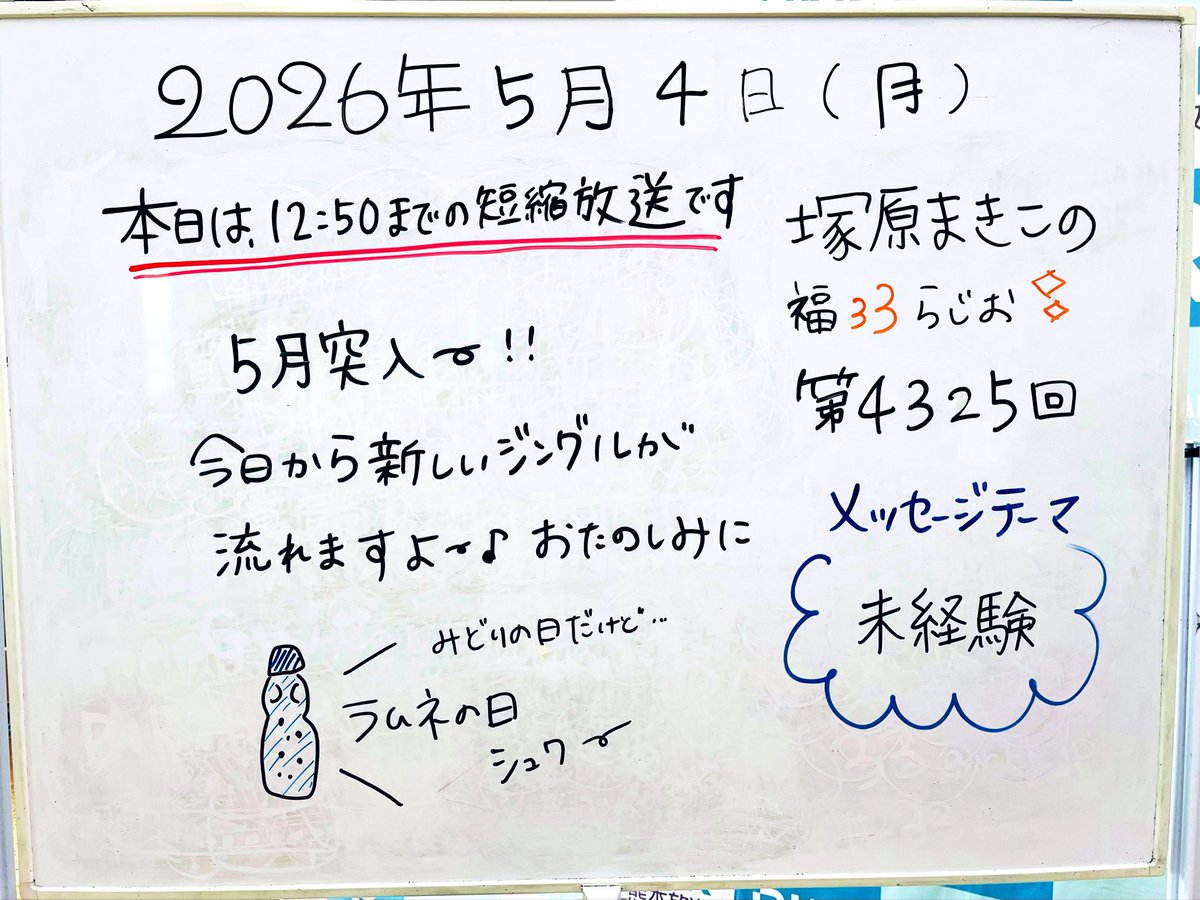 2026年5月4日(月)
本日は、12:50までの短縮放送です
5月突入〜!!
今日から新しいジングルが
流れますよ〜♪ おたのしみに
みどりの日だけど…
ラムネの日
シュワ〜
塚原まきこの
福ろろらじお
第4325回
メッセージテーマ
未経験